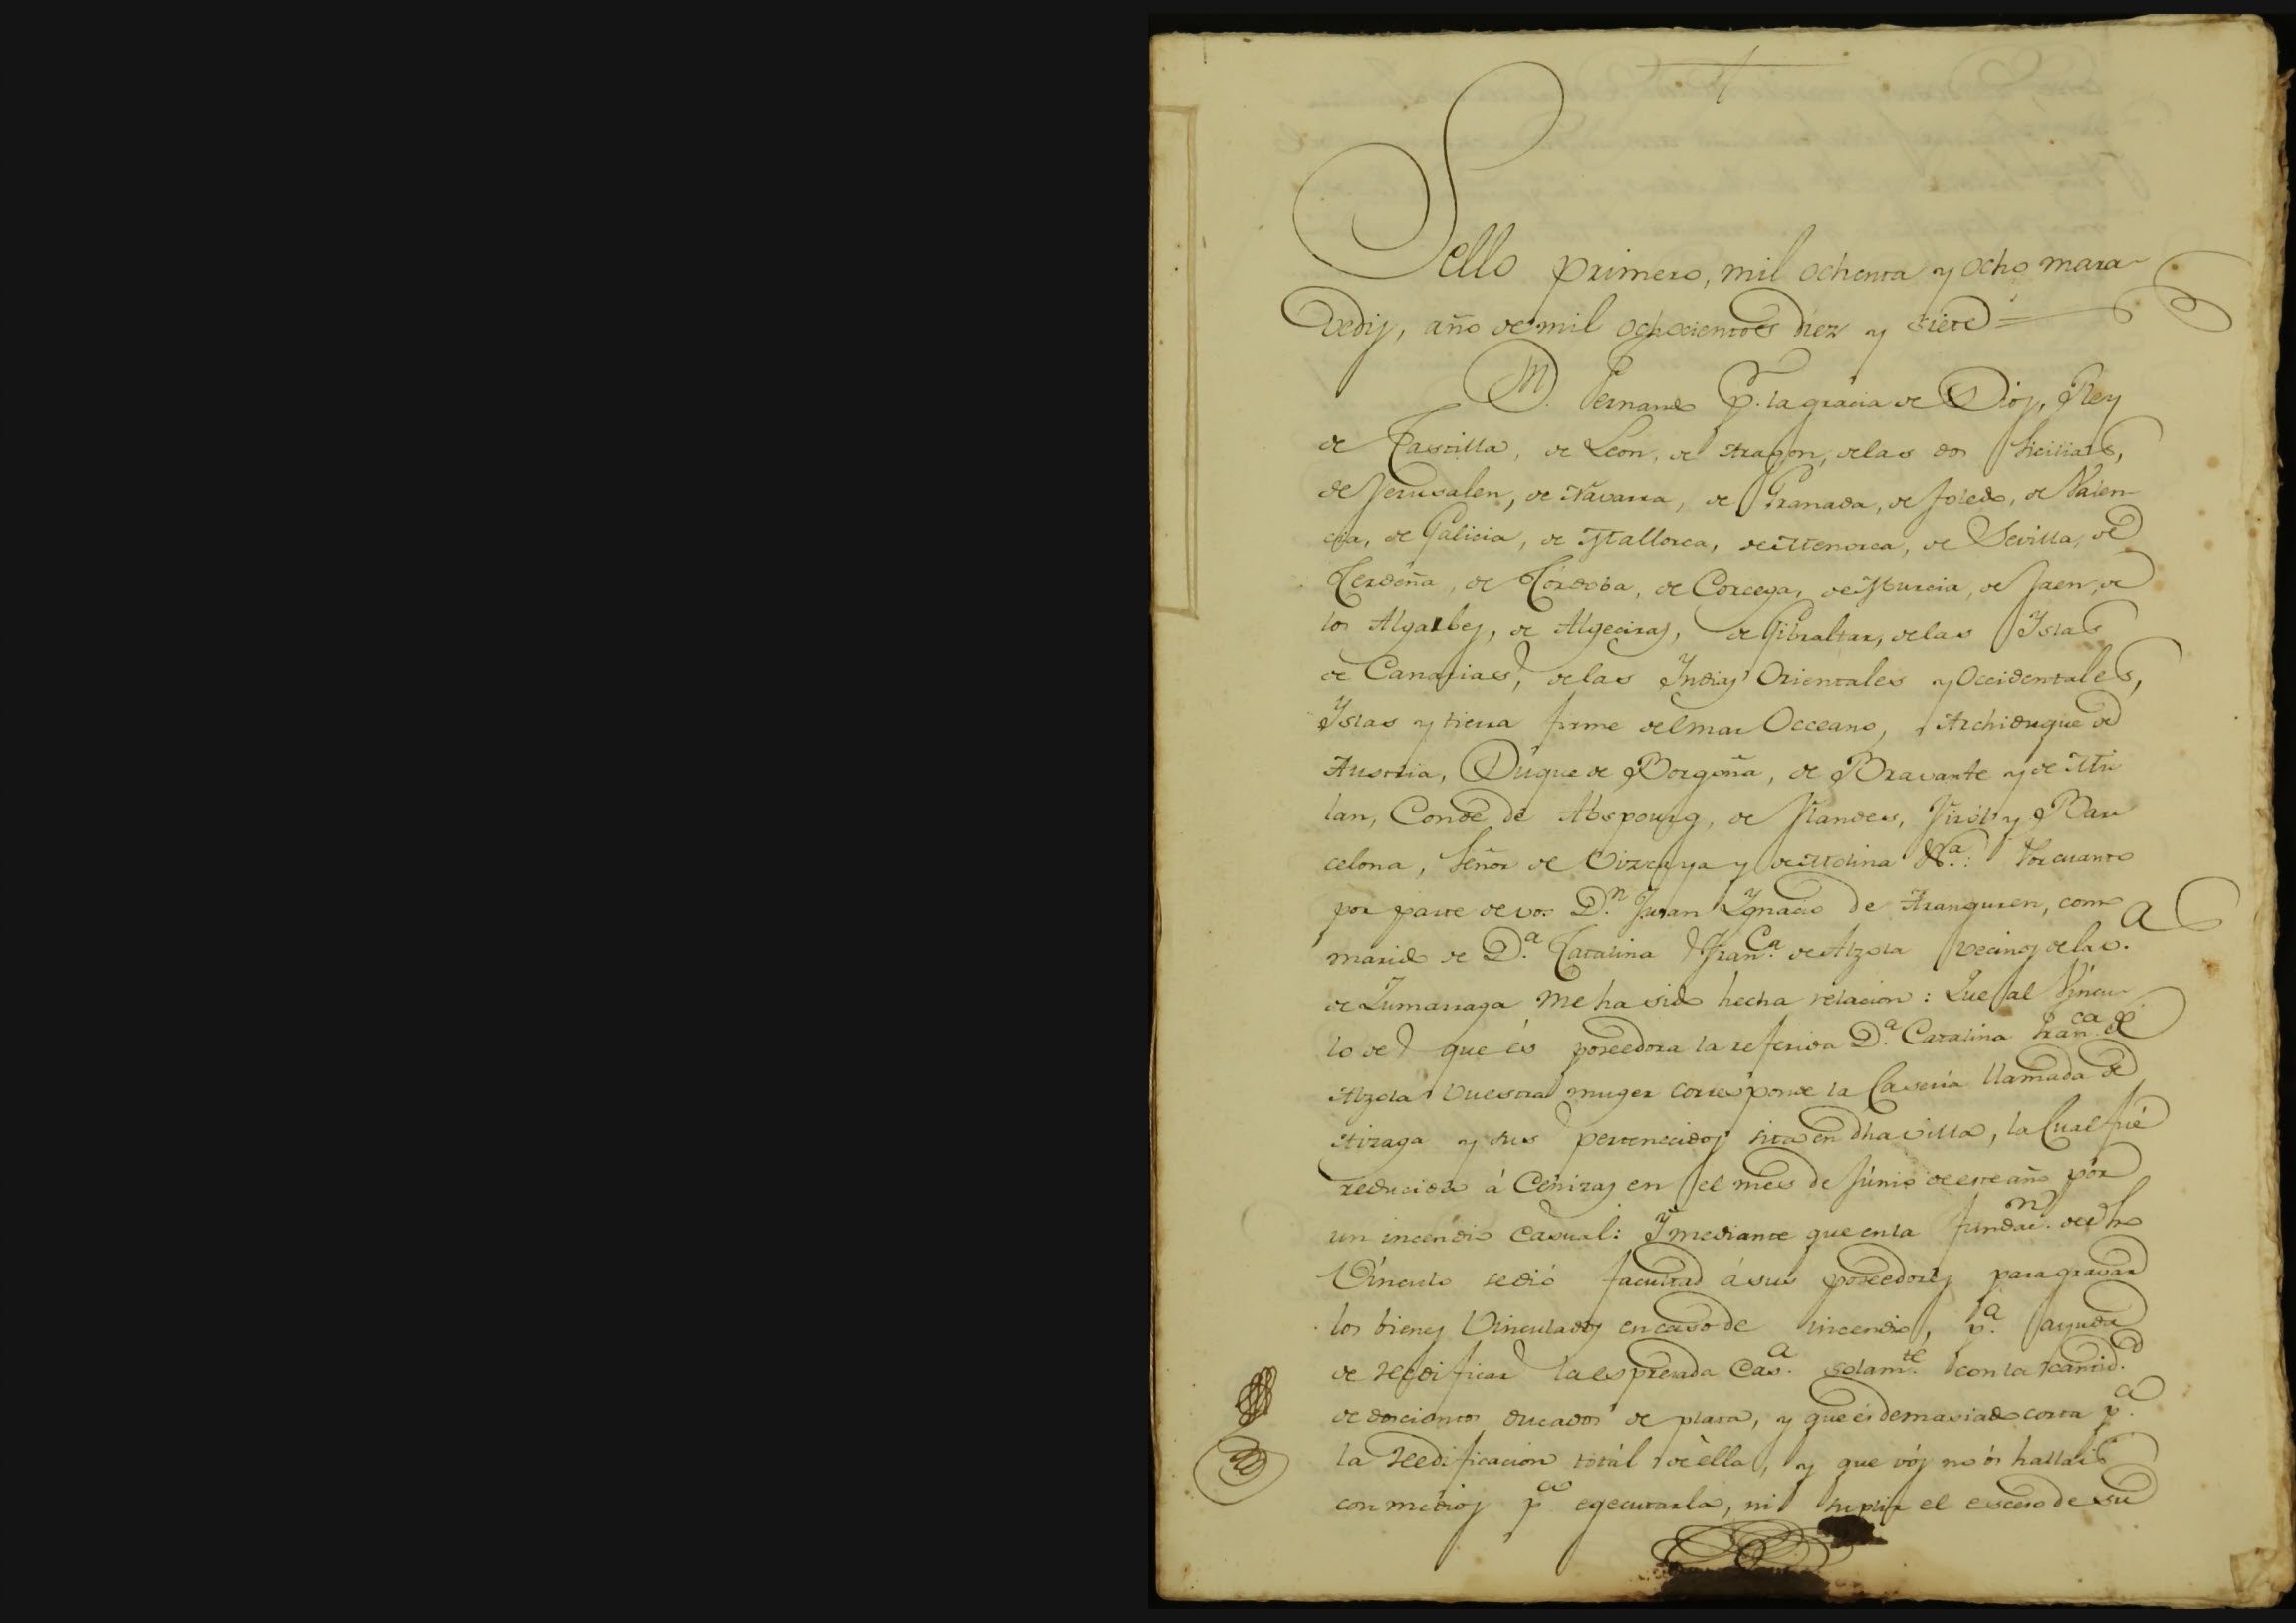 Sello primero, mil ochenta y ocho mara-
vedis, año de mil ochocientos diez y siete =
Dn. Fernando pr. la gracia de Dios, Rey
de Castilla, de Leon, de Aragon, de las dos Sicilias,
de Jerusalen, de Navarra, de Granada, de Toledo, de Valen-
cia, de Galicia, de Mallorca, de Menorca, de Sevilla, de
Cerdeña, de Córdoba, de Corcega, de Murcia, de Jaen, de
los Algarbes, de Algeciras, de Gibraltar, de las Yslas
de Canarias, de las Yndias Orientales y Occidentales,
Yslas y tierra firme del mar Occeano, Archiduque de
Austria, Duque de Borgoña, de Bravante y de Mi
lan, Conde de Abspourg, de Flandes, Tiról y Bar
celona, Señor de Vizcaya y de Molina &a.: Por cuanto
por parte de vos Dn. Juan Ygnacio de Aranguren, como
marido de Da. Catalina Franca. de Alzola vecinos de la va.
de Zumarraga me ha sido hecha relacion: Que al Víncu-
lo de que és poseedora la referida Da. Catalina Franca. de
Alzola vuestra muger corresponde la Casería llamada de
Aizaga y sus pertenecidos sita en dha villa, la Cual fué
reducida á Cenizas en el mes de Júnio de este año pór
un incendio Casual: Y mediante que en la fundacn. de dho
Vínculo se dió facultad á sus poseedores para gravar
los bienes Vinculados en caso de incendio, pa. ayuda
de reedificar la espresada Casa. solamte. con la cantidd.
de doscientos ducados de plata, y que és demasiado corta pa.
la reedificacion totál de ella, y que vós no ós hallais
con medios pa egecutarla, ni suplir el esceso de su